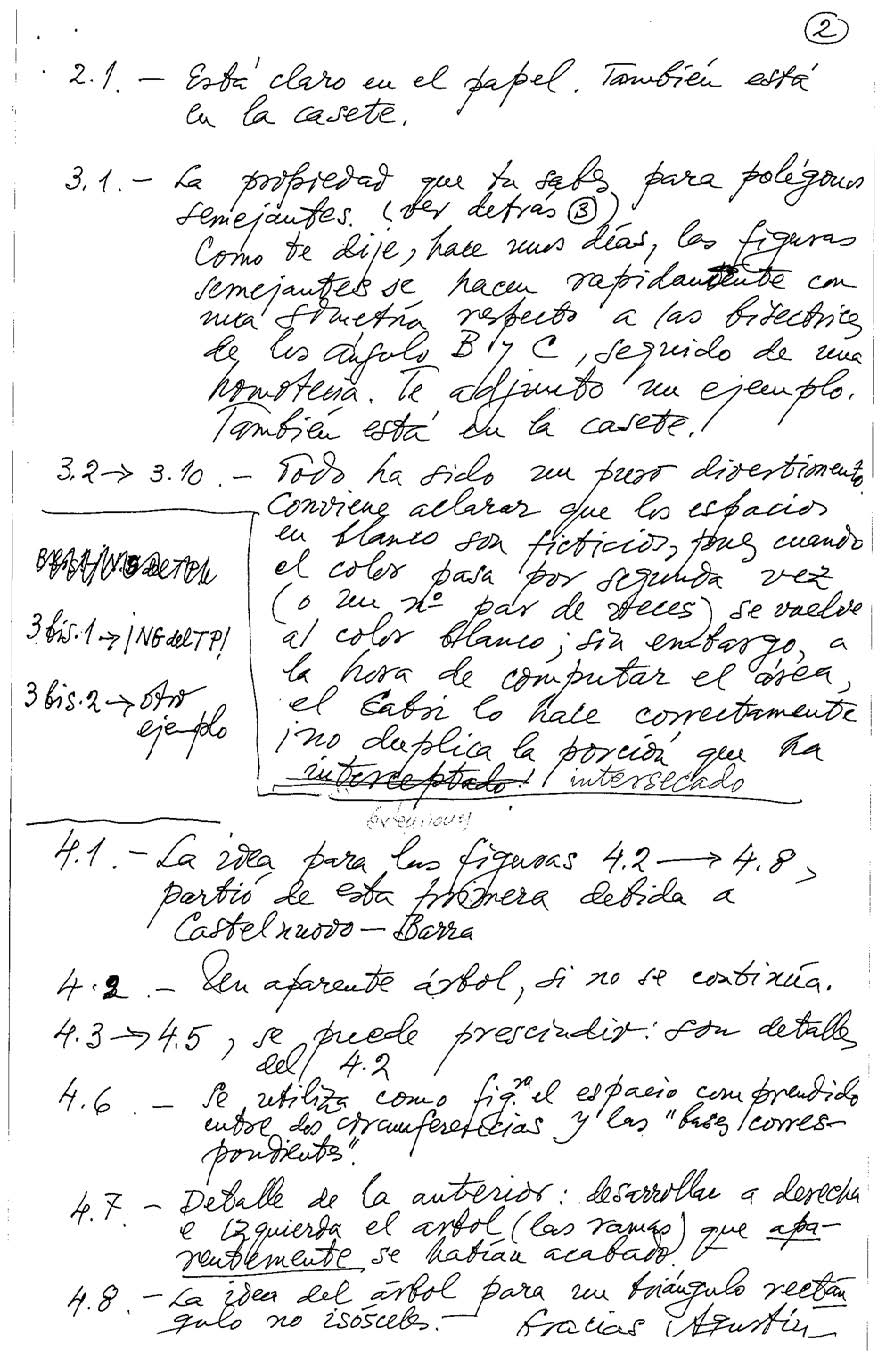 2
2.1. – Está claro en el papel. También está
en la casete.
3.1. – La propiedad que tu sabes para polígonos
semejantes. (ver detrás 3)
Como te dije, hace unos días, las figuras
semejantes se hacen rapidamente con
una simetría respecto a las bisectrices
de los ángulo B y C, seguido de una
homotecia. Te adjunto un ejemplo.
También está en la casete.
3.2 → 3.10. – Todo ha sido un puro divertimento
Conviene aclarar que los espacios
en blanco son ficticios, pues cuando
el color pasa por segunda vez
(o un nº par de veces) se vuelve
al color blanco; sin embargo, a
la hora de computar el área,
el Cabri lo hace correctamente
¡no duplica la porción que ha
interceptado! intersecado
3 bis.1 → ¡NG del TP!
3 bis.2 → otro
ejemplo
4.1. – La idea para las figuras 4.2 → 4.8,
partió de esta primera debida a
Castelnuovo – Barra
4.2. – Un aparente árbol, si no se continúa.
4.3 → 4.5, se puede prescindir: son detalles
del 4.2
4.6. – Se utiliza como figª el espacio comprendido
entre dos circunferencias y las "bases corres-
pondientes".
4.7. – Detalle de la anterior: desarrollar a derecha
e izquierda el arbol (las ramas) que apa-
rentemente se habían acabado.
4.8. – La idea del árbol para un triángulo rectán
gulo no isósceles. – Gracias Agustín